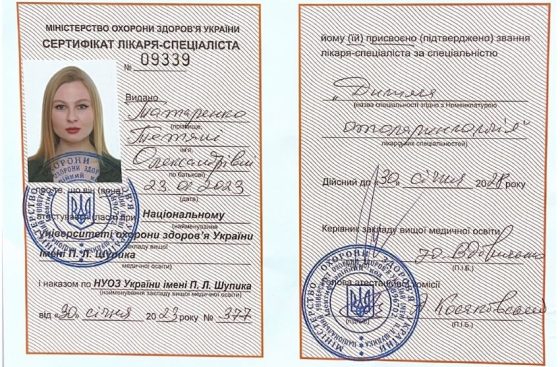 МІНІСТЕРСТВО ОХОРОНИ ЗДОРОВ'Я УКРАЇНИ
СЕРТИФІКАТ ЛІКАРЯ-СПЕЦІАЛІСТА
№ 09339
Видано
Натаренко
(прізвище,
Тетяні
ім'я,
Олександрівні
по батькові)
23.01.2023
(дата)
про те, що він (вона)
Національному
(найменування
університеті охорони здоров'я України
закладу вищої
імені П. Л. Шупика
медичної освіти)
і наказом по НУОЗ України імені П. Л. Шупика
(найменування закладу вищої медичної освіти)
від «30» січня 2023 року № 377
йому (їй) присвоєно (підтверджено) звання
лікаря-спеціаліста за спеціальністю
„Дитяча
(назва спеціальності згідно з Номенклатурою
отоларингологія"
лікарських спеціальностей)
Дійсний до «30» січня 2028 року
Керівник закладу вищої медичної освіти
(П.І.Б.)
Голова атестаційної комісії
(П.І.Б.)